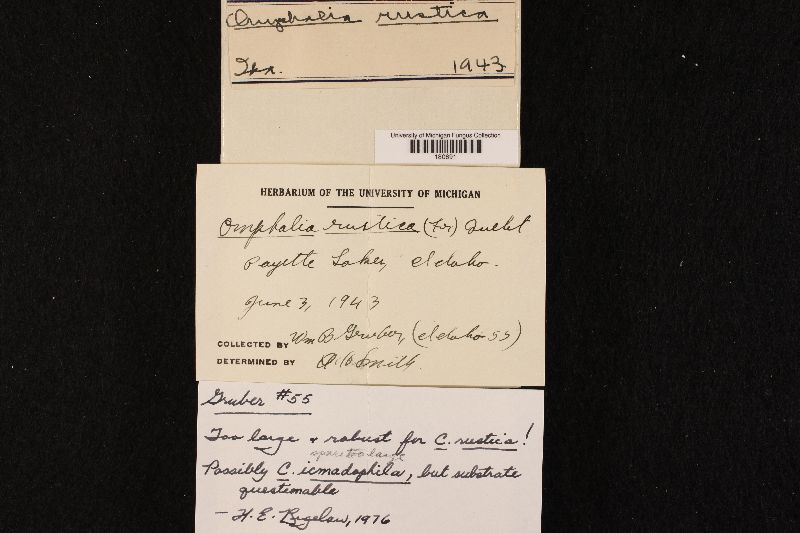 Omphalia rustica
Ida. 1943
University of Michigan Fungus Collection
180691
HERBARIUM OF THE UNIVERSITY OF MICHIGAN
Omphalia rustica (Fr) Quelet
Payette Lakes, Idaho.
June 3, 1943
COLLECTED BY Wm B Gruber, (Idaho 55)
DETERMINED BY A.H. Smith.
Gruber #55
Too large & robust for C. rustica!
spores too large
Possibly C. icmadophila, but substrate
questionable
- H. E. Bigelow, 1976